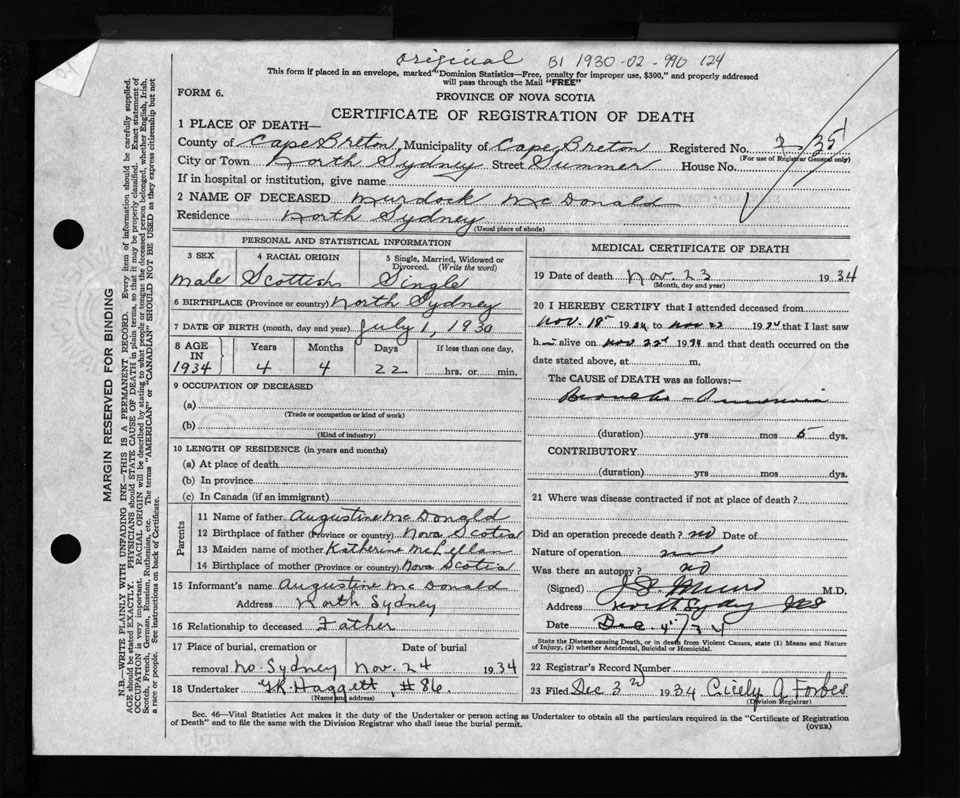 Original B1 1930-02-990 124
This form if placed in an envelope, marked "Dominion Statistics—Free, penalty for improper use, $300," and properly addressed
will pass through the Mail "FREE"
FORM 6.
PROVINCE OF NOVA SCOTIA
CERTIFICATE OF REGISTRATION OF DEATH
1 PLACE OF DEATH—
County of Cape Breton, Municipality of Cape Breton Registered No. 
City or Town North Sydney Street Summer House No. (For use of Registrar General only)
If in hospital or institution, give name
2 NAME OF DECEASED Murdock McDonald
Residence North Sydney
(Usual place of abode)
PERSONAL AND STATISTICAL INFORMATION
3 SEX 4 RACIAL ORIGIN 5 Single, Married, Widowed or Divorced. (Write the word)
male Scottish Single
6 BIRTHPLACE (Province or country) North Sydney
7 DATE OF BIRTH (month, day and year) July 1, 1930
8 AGE IN 1934 Years Months Days If less than one day,
4 4 22 hrs. or min.
9 OCCUPATION OF DECEASED
(a)
(Trade or occupation or kind of work)
(b)
(Kind of industry)
10 LENGTH OF RESIDENCE (in years and months)
(a) At place of death
(b) In province
(c) In Canada (if an immigrant)
Parents
11 Name of father Augustine McDonald
12 Birthplace of father (Province or country) Nova Scotia
13 Maiden name of mother Katherine McLellan
14 Birthplace of mother (Province or country) Nova Scotia
15 Informant's name Augustine McDonald
Address North Sydney
16 Relationship to deceased Father
17 Place of burial, cremation or Date of burial
removal No. Sydney Nov. 24 1934
18 Undertaker Haggett, #86.
(Name and address)
MEDICAL CERTIFICATE OF DEATH
19 Date of death Nov. 23 1934
(Month, day and year)
20 I HEREBY CERTIFY that I attended deceased from
Nov. 18 1934 to Nov 22 1934 that I last saw
him alive on Nov 22 1934 and that death occurred on the
date stated above, at m.
The CAUSE of DEATH was as follows:—
Broncho-Pneumonia
(duration) yrs mos 5 dys.
CONTRIBUTORY
(duration) yrs mos dys.
21 Where was disease contracted if not at place of death?
Did an operation precede death? no Date of
Nature of operation
Was there an autopsy? no
(Signed) M.D.
Address North Sydney NS
Date Dec 4/34
State the Disease causing Death, or in death from Violent Causes, state (1) Means and Nature
of Injury, (2) whether Accidental, Suicidal or Homicidal.
22 Registrar's Record Number
23 Filed Dec 3rd 1934 Cicely A Forbes
(Division Registrar)
Sec. 46—Vital Statistics Act makes it the duty of the Undertaker or person acting as Undertaker to obtain all the particulars required in the "Certificate of Registration
of Death" and to file the same with the Division Registrar who shall issue the burial permit.
(OVER)
MARGIN RESERVED FOR BINDING
N.B.—WRITE PLAINLY WITH UNFADING INK—THIS IS A PERMANENT RECORD. Every item of information should be carefully supplied.
AGE should be stated EXACTLY. PHYSICIANS should STATE CAUSE OF DEATH in plain terms, so that it may be properly classified. Exact statement of
OCCUPATION is very important. RACIAL ORIGIN will be described by stating to what people or tongue the deceased person belonged, whether English, Irish,
Scotch, French, German, Russian, Ruthenian, etc. The terms "AMERICAN" or "CANADIAN" SHOULD NOT BE USED as they express citizenship but not
a race or people. See instructions on back of Certificate.